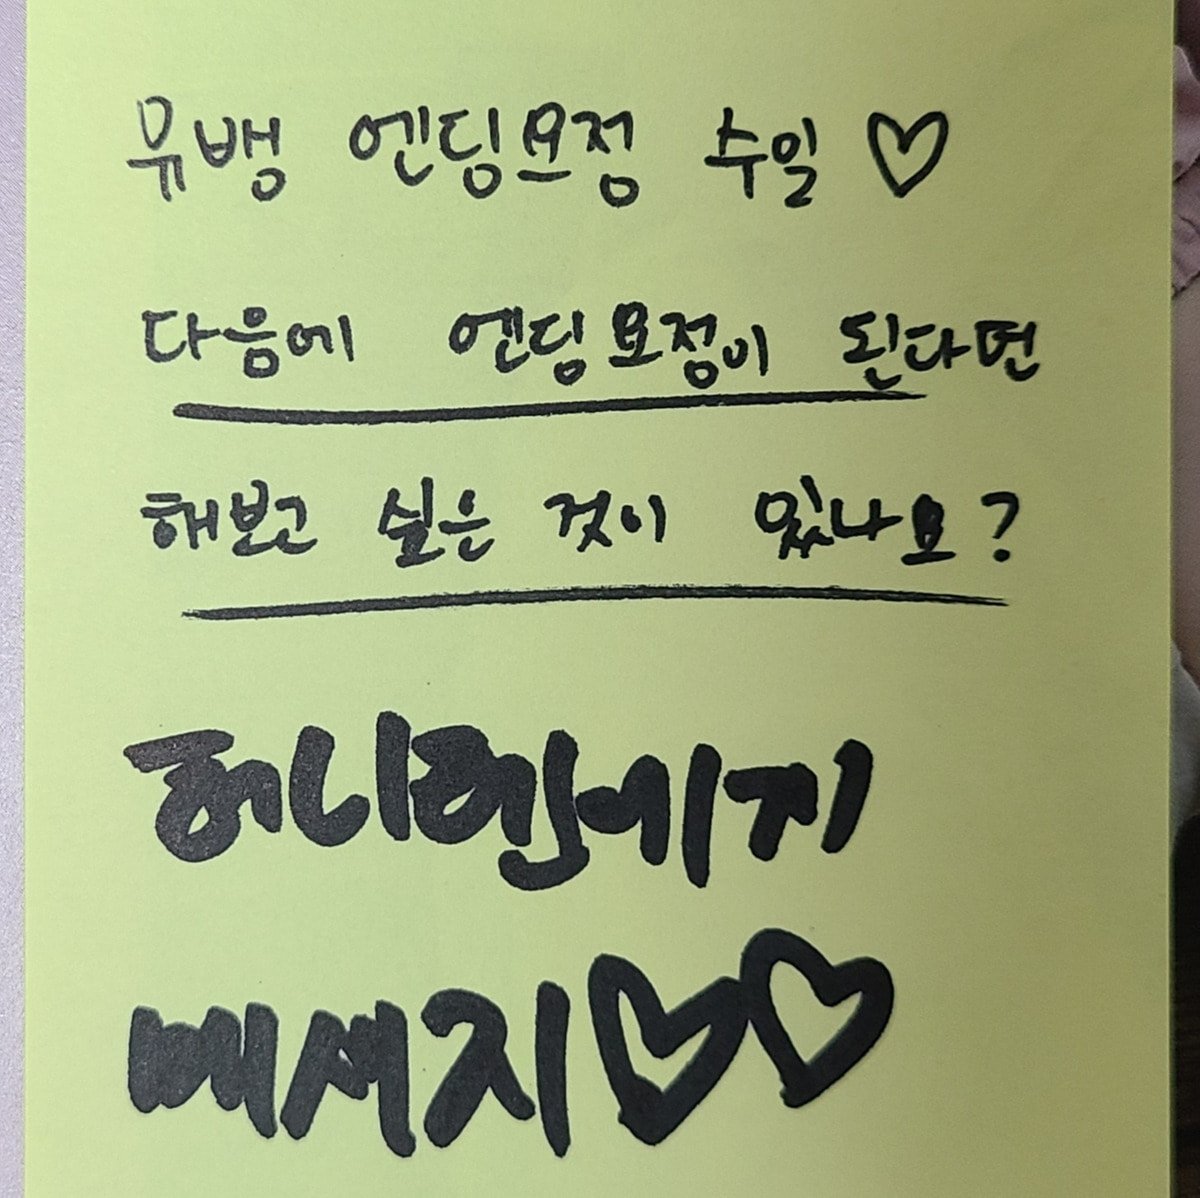 뮤뱅 엔딩요정 수일 ♡
다음에 엔딩요정이 된다면
해보고 싶은 것이 있나요?
메세지♡♡